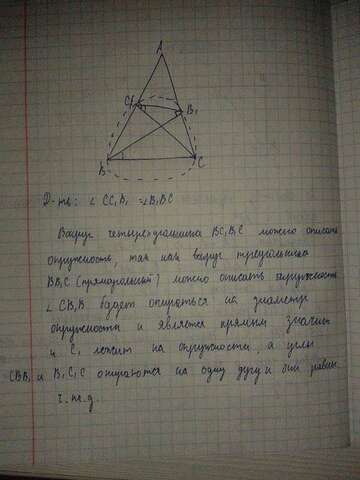 A
C₁
B₁
B
C
Д-ть: ∠ CC₁B₁ = ∠B₁BC
Вокруг четырехугольника BC₁B₁C можно описать
окружность, так как вокруг треугольника
BB₁C (прямоугольный) можно описать окружность
∠ CB₁B будет опираться на диаметр
окружности и является прямым значит
и C₁ лежит на окружности, а углы
CBB₁ и B₁C₁C опираются на одну дугу и они равны
ч.т.д.